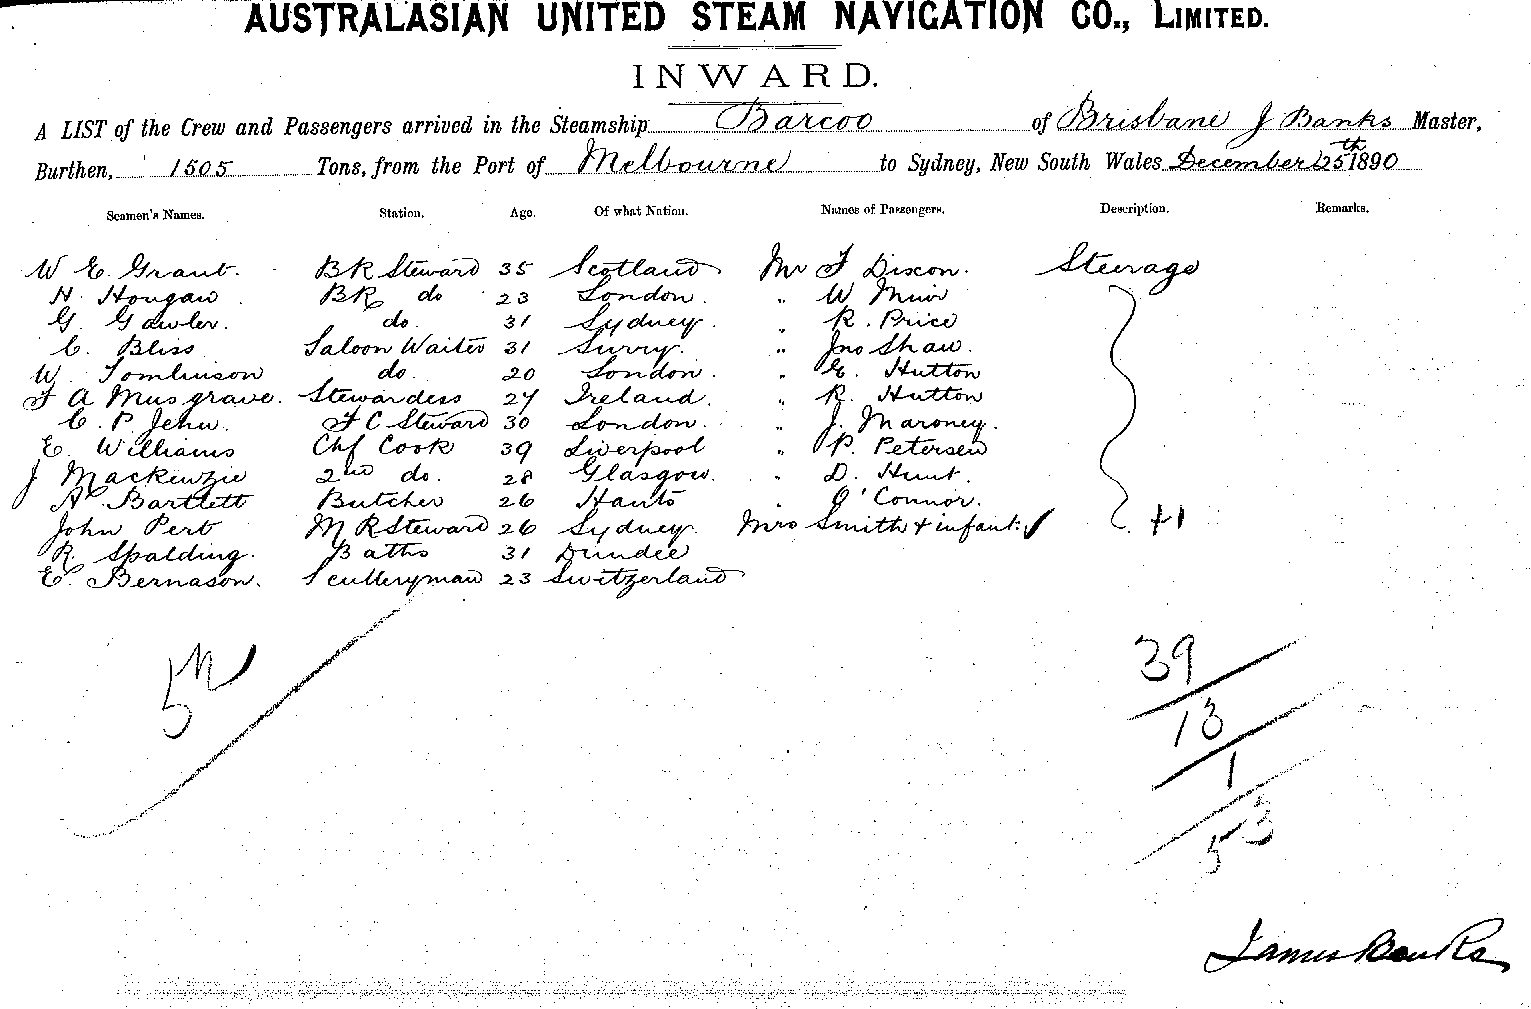 AUSTRALASIAN UNITED STEAM NAVIGATION CO., LIMITED.
INWARD.
A LIST of the Crew and Passengers arrived in the Steamship Barcoo of Brisbane J Banks Master,
Burthen, 1505 Tons, from the Port of Melbourne to Sydney, New South Wales December 25th 1890
Seamen's Names. Station. Age. Of what Nation. Names of Passengers. Description. Remarks.
W E. Grant. BR Steward 35 Scotland Mr F Dixon. Steerage
H. Hougaw BR do 23 London. " W Muir
G. Gawler. do. 31 Sydney. " R. Price
C. Bliss Saloon Waiter 31 Surry. " Jno Shaw.
W. Tomlinson do. 20 London. " G. Hutton
F A Musgrave. Stewardess 27 Ireland. " R. Hutton
C. P. Jehu. F C Steward 30 London. " J. Maroney.
E. Williams Chf Cook 39 Liverpool " P. Petersen
J Mackenzie 2nd do. 28 Glasgow. " D. Hunt.
A. Bartlett Butcher 26 Hants O'Connor.
John Pert M R Steward 26 Sydney. Mrs Smith + infant: +1
R. Spalding. Baths 31 Dundee
E. Bernason. Sculleryman 23 Switzerland
39
13
1
53
James Banks